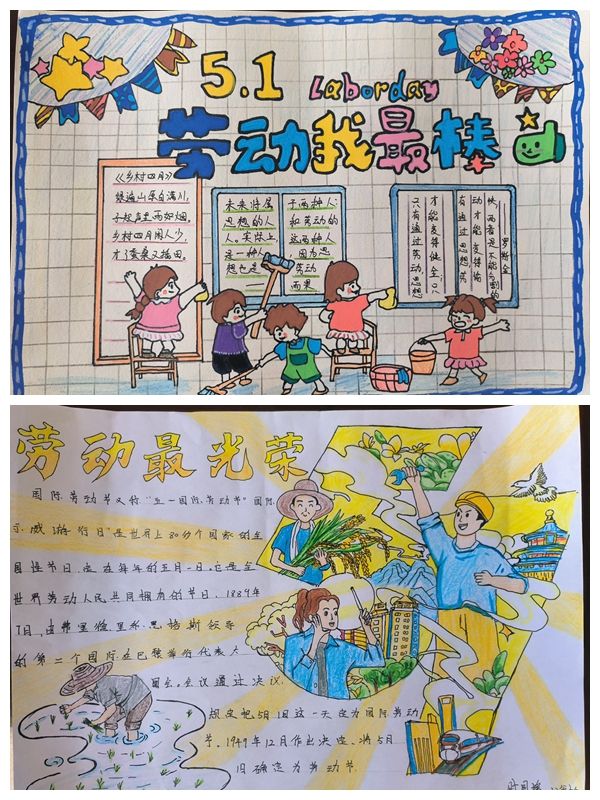 5.1 Laborday
劳动我最棒
《乡村四月》
绿遍山原白满川，
子规声里雨如烟。
乡村四月闲人少，
才了蚕桑又插田。
未来将属
思想的人
人。实际上，
是一种人
想也是
于两种人：
和劳动的
这两种人
因为思
劳动
而果
只有通过劳动，思想
才能变得健全；
有通过思想，劳
动才能变得愉
快，两者是不能分割的
——罗斯金
劳动最光荣
国际劳动节又称"五一国际劳动节"国际
示威游行日"是世界上80多个国家的全
国性节日。定在每年的五月一日。它是全
世界劳动人民共同拥有的节日。1889年
7月，由弗里德里希·恩格斯领导
的第二个国际在巴黎举行代表大
会。会议通过决议，
规定把5月1日这一天定为国际劳动
节。1949年12月作出决定。将5月
1日确定为劳动节.